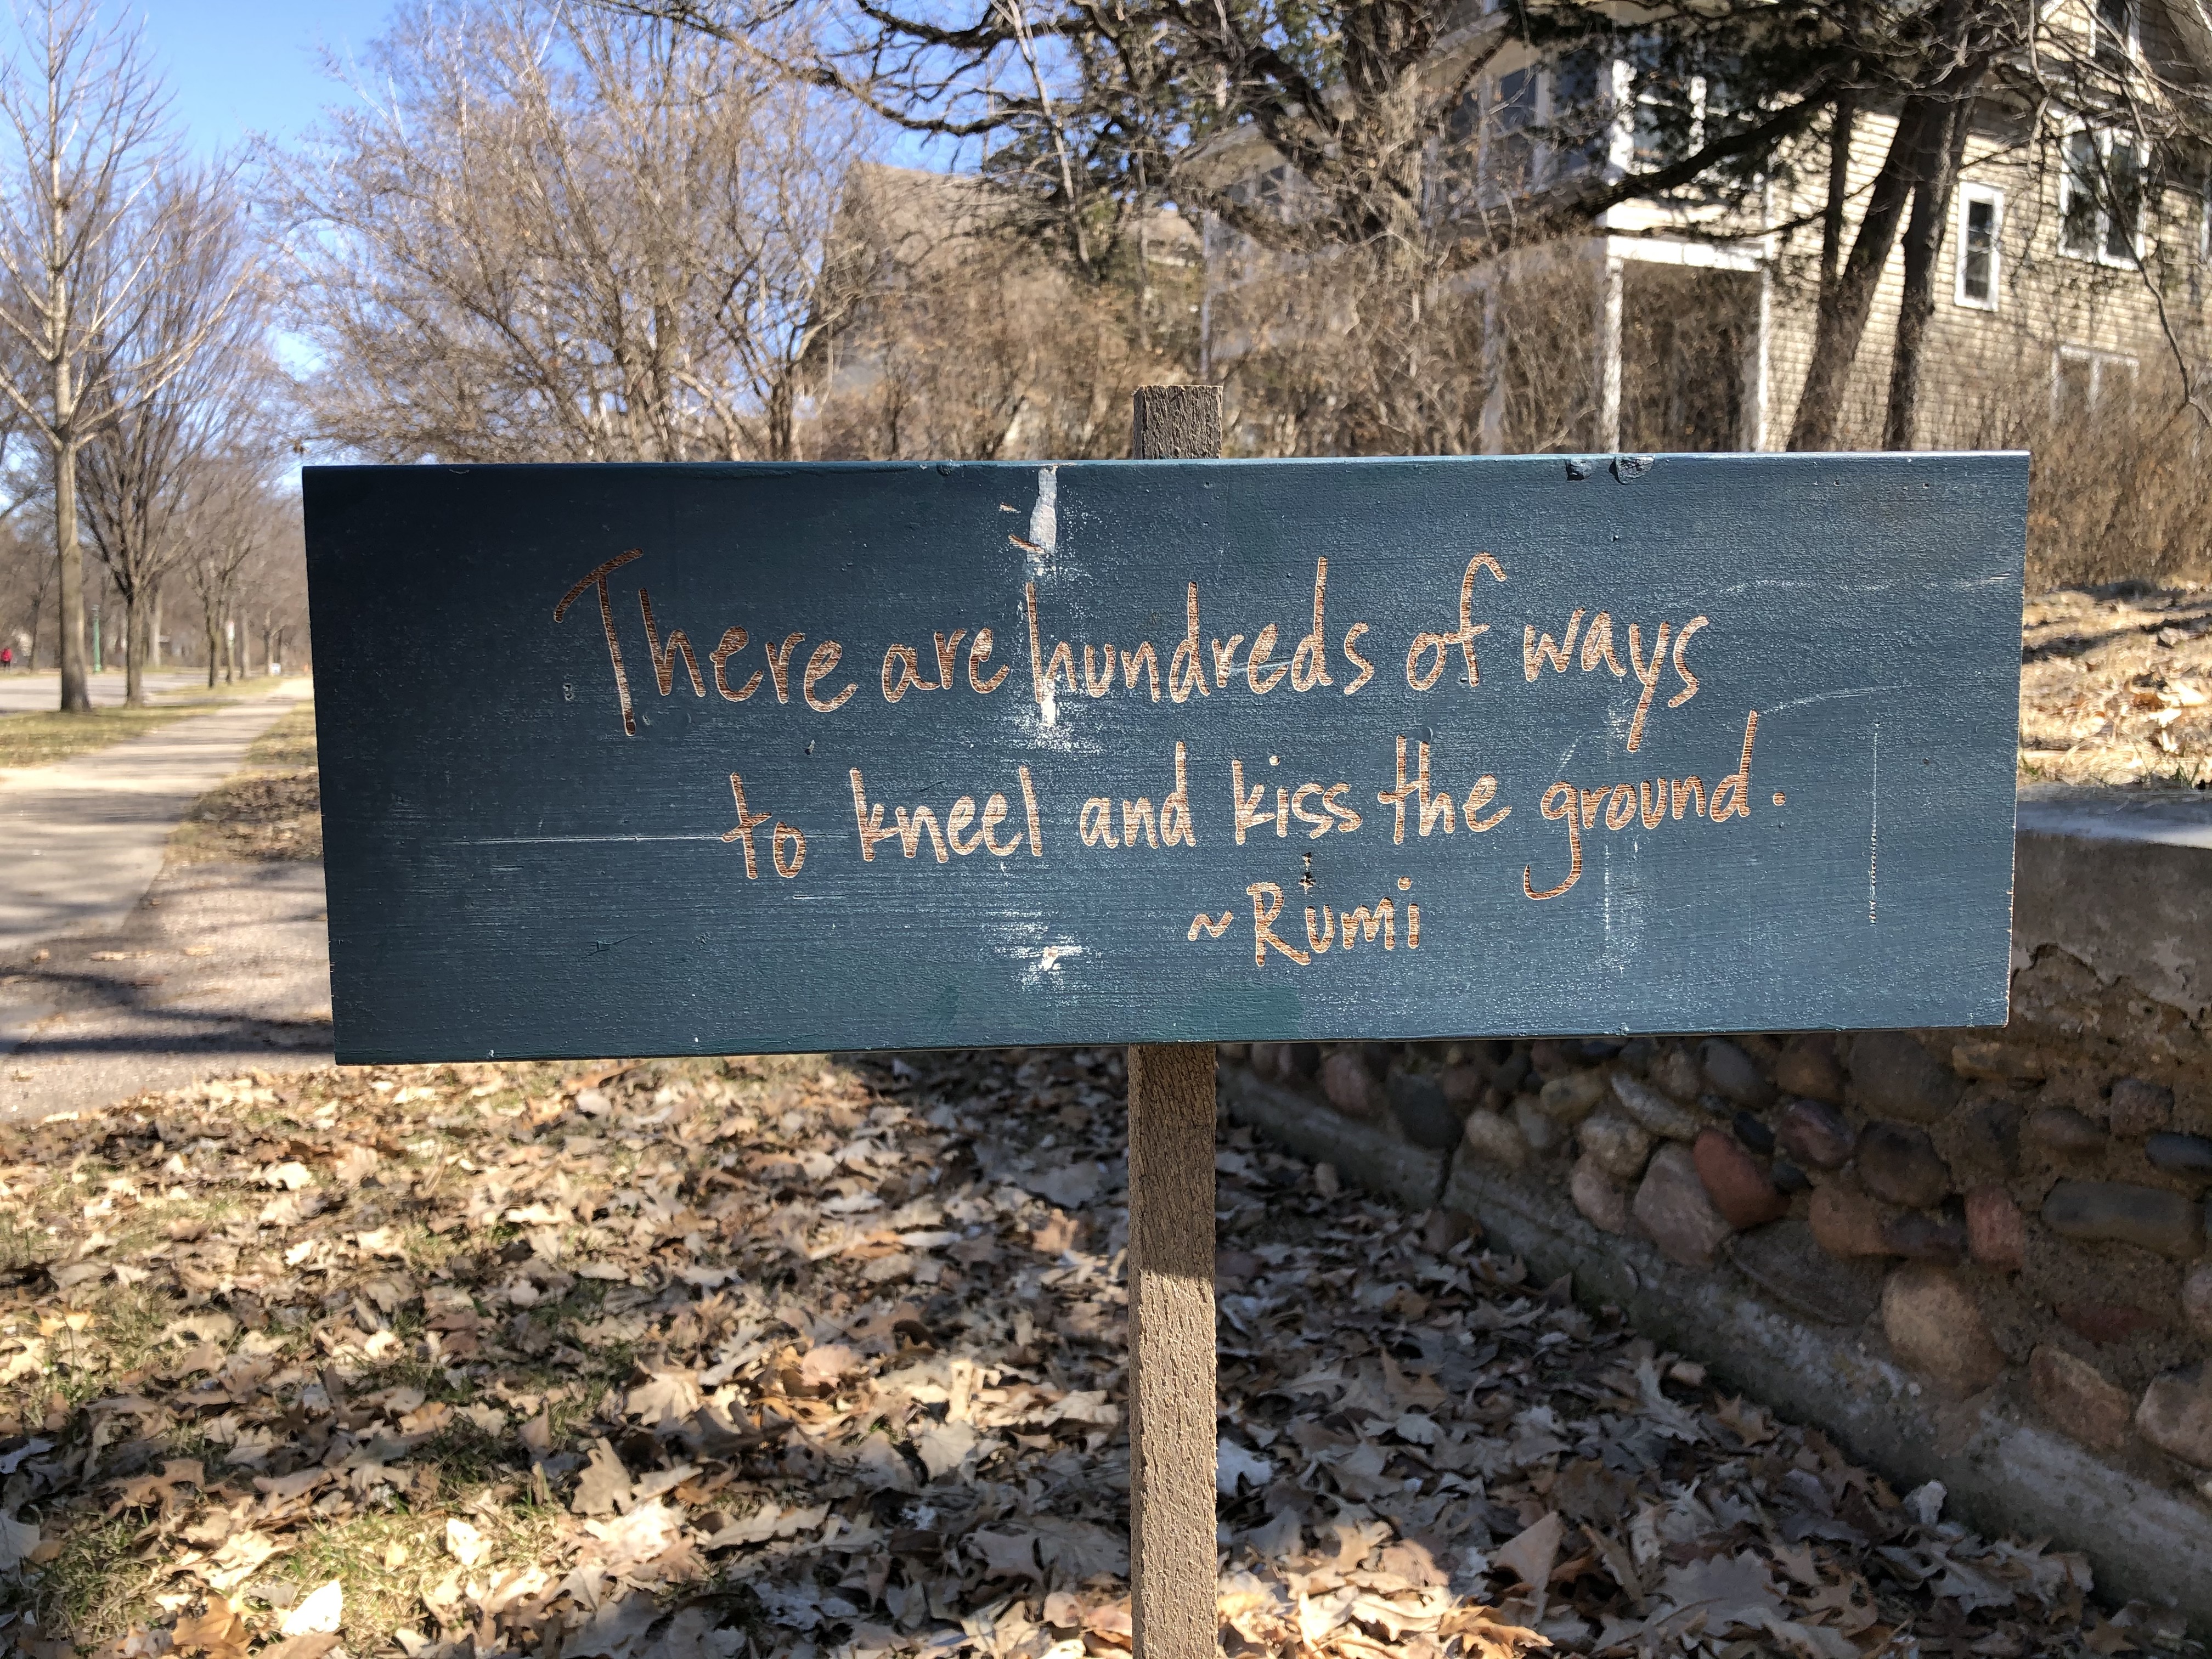 There are hundreds of ways
to kneel and kiss the ground.
~Rumi